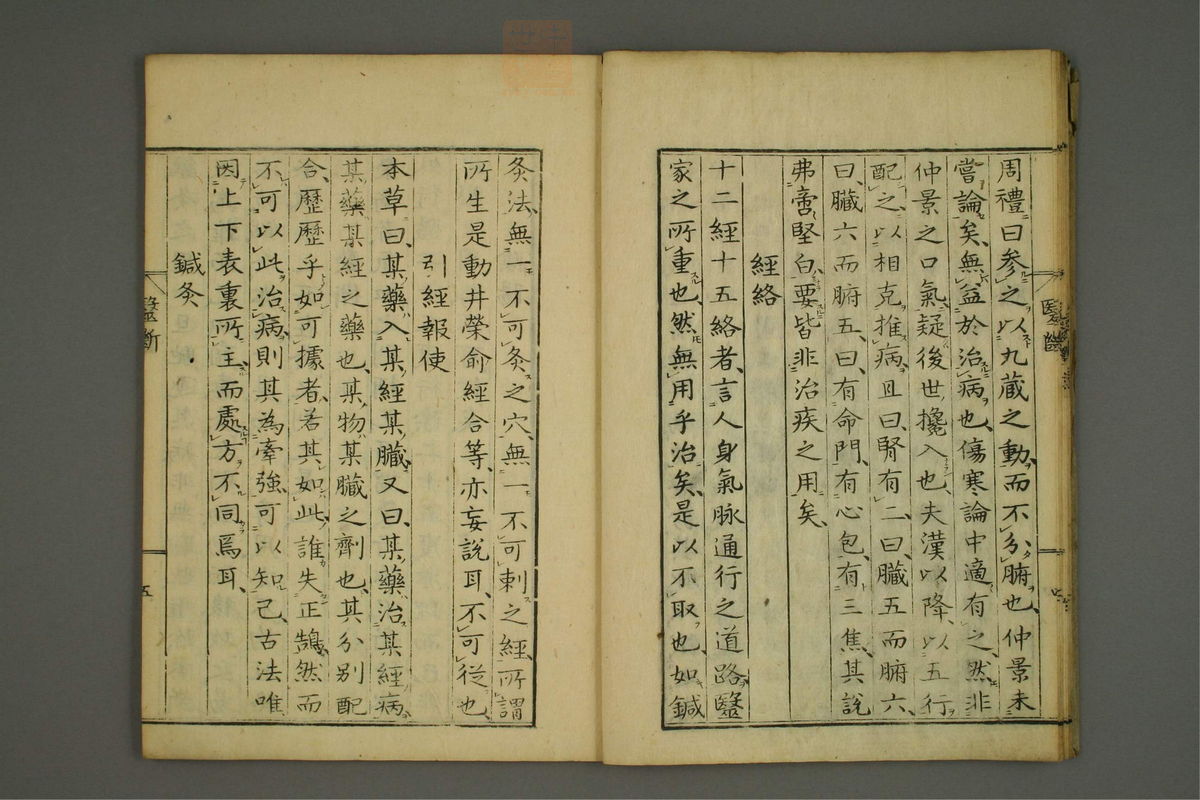 周禮曰參之以九蔵之動而不分腑也仲景未
嘗論矣、無益於治病也、傷寒論中適有之、然非
仲景之口氣、疑後世攙入也、夫漢以降、以五行
配之、以相克推病且曰、腎有二、曰、臟五而腑六、
曰、臟六而腑五、曰、有命門、有心包、有三焦、其說
弗啻堅白、要皆非治疾之用矣、
經絡
十二經十五絡者、言人身氣脉通行之道路、醫
家之所重也、然無用乎治矣、是以不取也、如鍼
灸法、無一不可灸之穴、無一不可刺之經、所謂
所生是動井榮俞經合等、亦妄說耳、不可從也、
引經報使
本草曰、某藥入某經某臟、又曰、某藥治某經病、
某藥某經之藥也、某物某臟之劑也、其分別配
合、歷歷乎如可據者、若其如此、誰失正鵠、然而
不可以此治病、則其為牽強、可以知已、古法唯、
因上下表裏所主、而處方不同焉耳、
鍼灸
醫斷
五